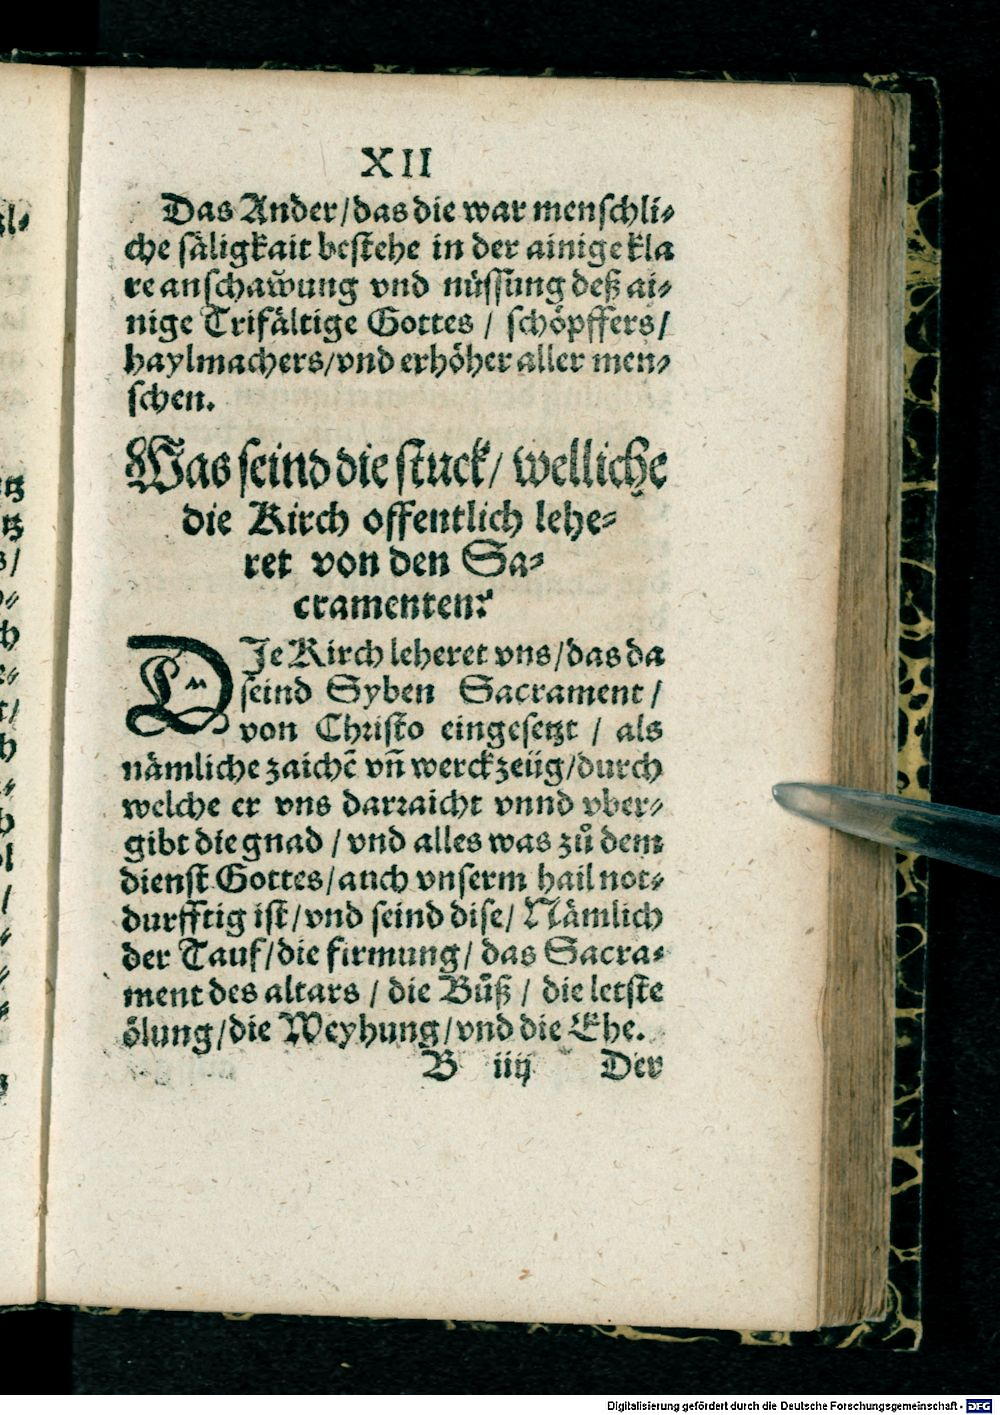 XII
Das Ander/das die war menschli⸗
che säligkait bestehe in der ainige kla
re anschawung vnd nüssung deß ai⸗
nige Trifältige Gottes / schöpffers/
haylmachers/vnd erhöher aller men⸗
schen.
Was seind die stuck/ welliche
die Kirch offentlich lehe⸗
ret von den Sa⸗
cramenten?
DJe Kirch leheret vns/das da
seind Syben Sacrament /
von Christo eingesetzt / als
nämliche zaichẽ vñ werckzeüg/durch
welche er vns darraicht vnnd vber⸗
gibt die gnad / vnd alles was zů dem
dienst Gottes/auch vnserm hail not⸗
durfftig ist/vnd seind dise/ Nämlich
der Tauf/die firmung/ das Sacra⸗
ment des altars / die Bůß / die letste
ölung/die Weyhung/vnd die Ehe.
B iiij Der
Digitalisierung gefördert durch die Deutsche Forschungsgemeinschaft - DFG